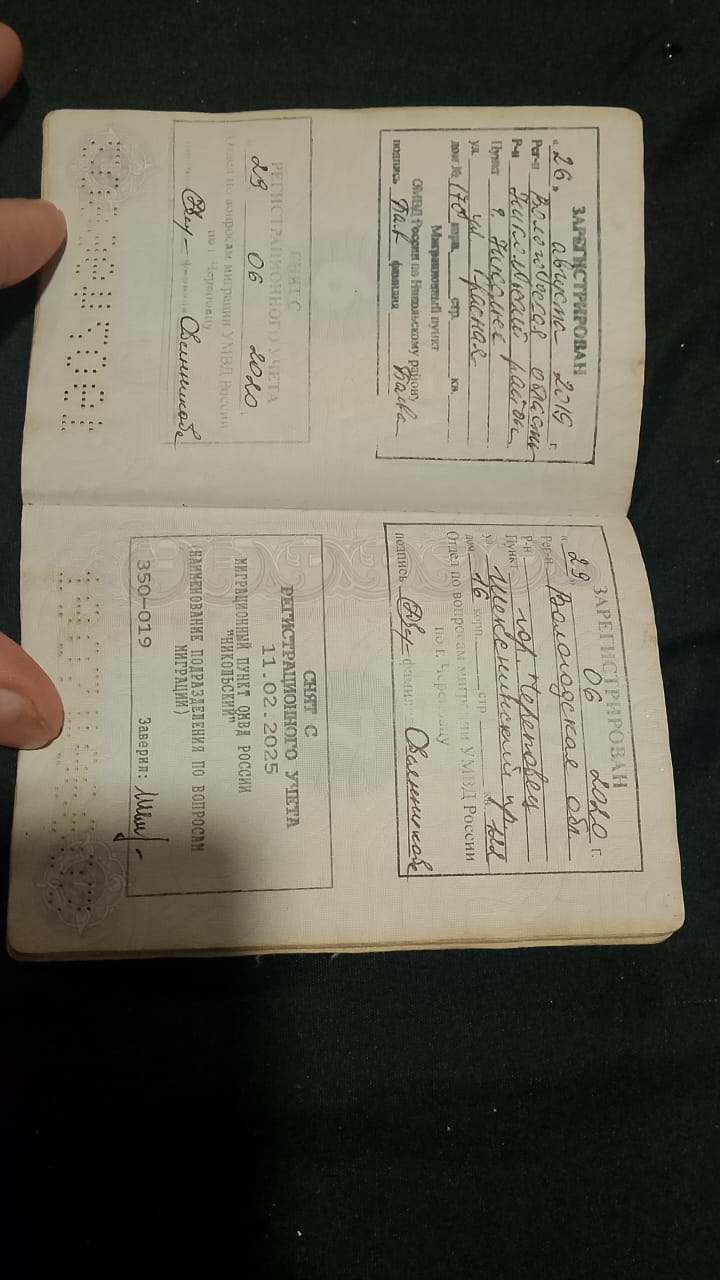 ЗАРЕГИСТРИРОВАН
"26" августа 2019 г.
Рег-н Вологодская область
Р-н Никольский район
Пункт г. Никольск
ул. ул Красная
дом № 170 корп. стр. кв.
Миграционный пункт
ОМВД России по Никольскому району
подпись фамилия Баева
СНЯТ С
РЕГИСТРАЦИОННОГО УЧЕТА
29 06 2020
Отдел по вопросам миграции УМВД России
по г. Череповцу
Овчинникова
ЗАРЕГИСТРИРОВАН
"29" 06 2020 г.
Рег-н Вологодская обл
Р-н
Пункт гор. Череповец
ул. Шекснинский пр-кт
дом 16 корп. стр. кв.
Отдел по вопросам миграции УМВД России
по г. Череповцу
подпись фамилия Овчинникова
СНЯТ С
РЕГИСТРАЦИОННОГО УЧЕТА
11.02.2025
МИГРАЦИОННЫЙ ПУНКТ ОМВД РОССИИ
"НИКОЛЬСКИЙ"
(НАИМЕНОВАНИЕ ПОДРАЗДЕЛЕНИЯ ПО ВОПРОСАМ
МИГРАЦИИ)
350-019 Заверил: